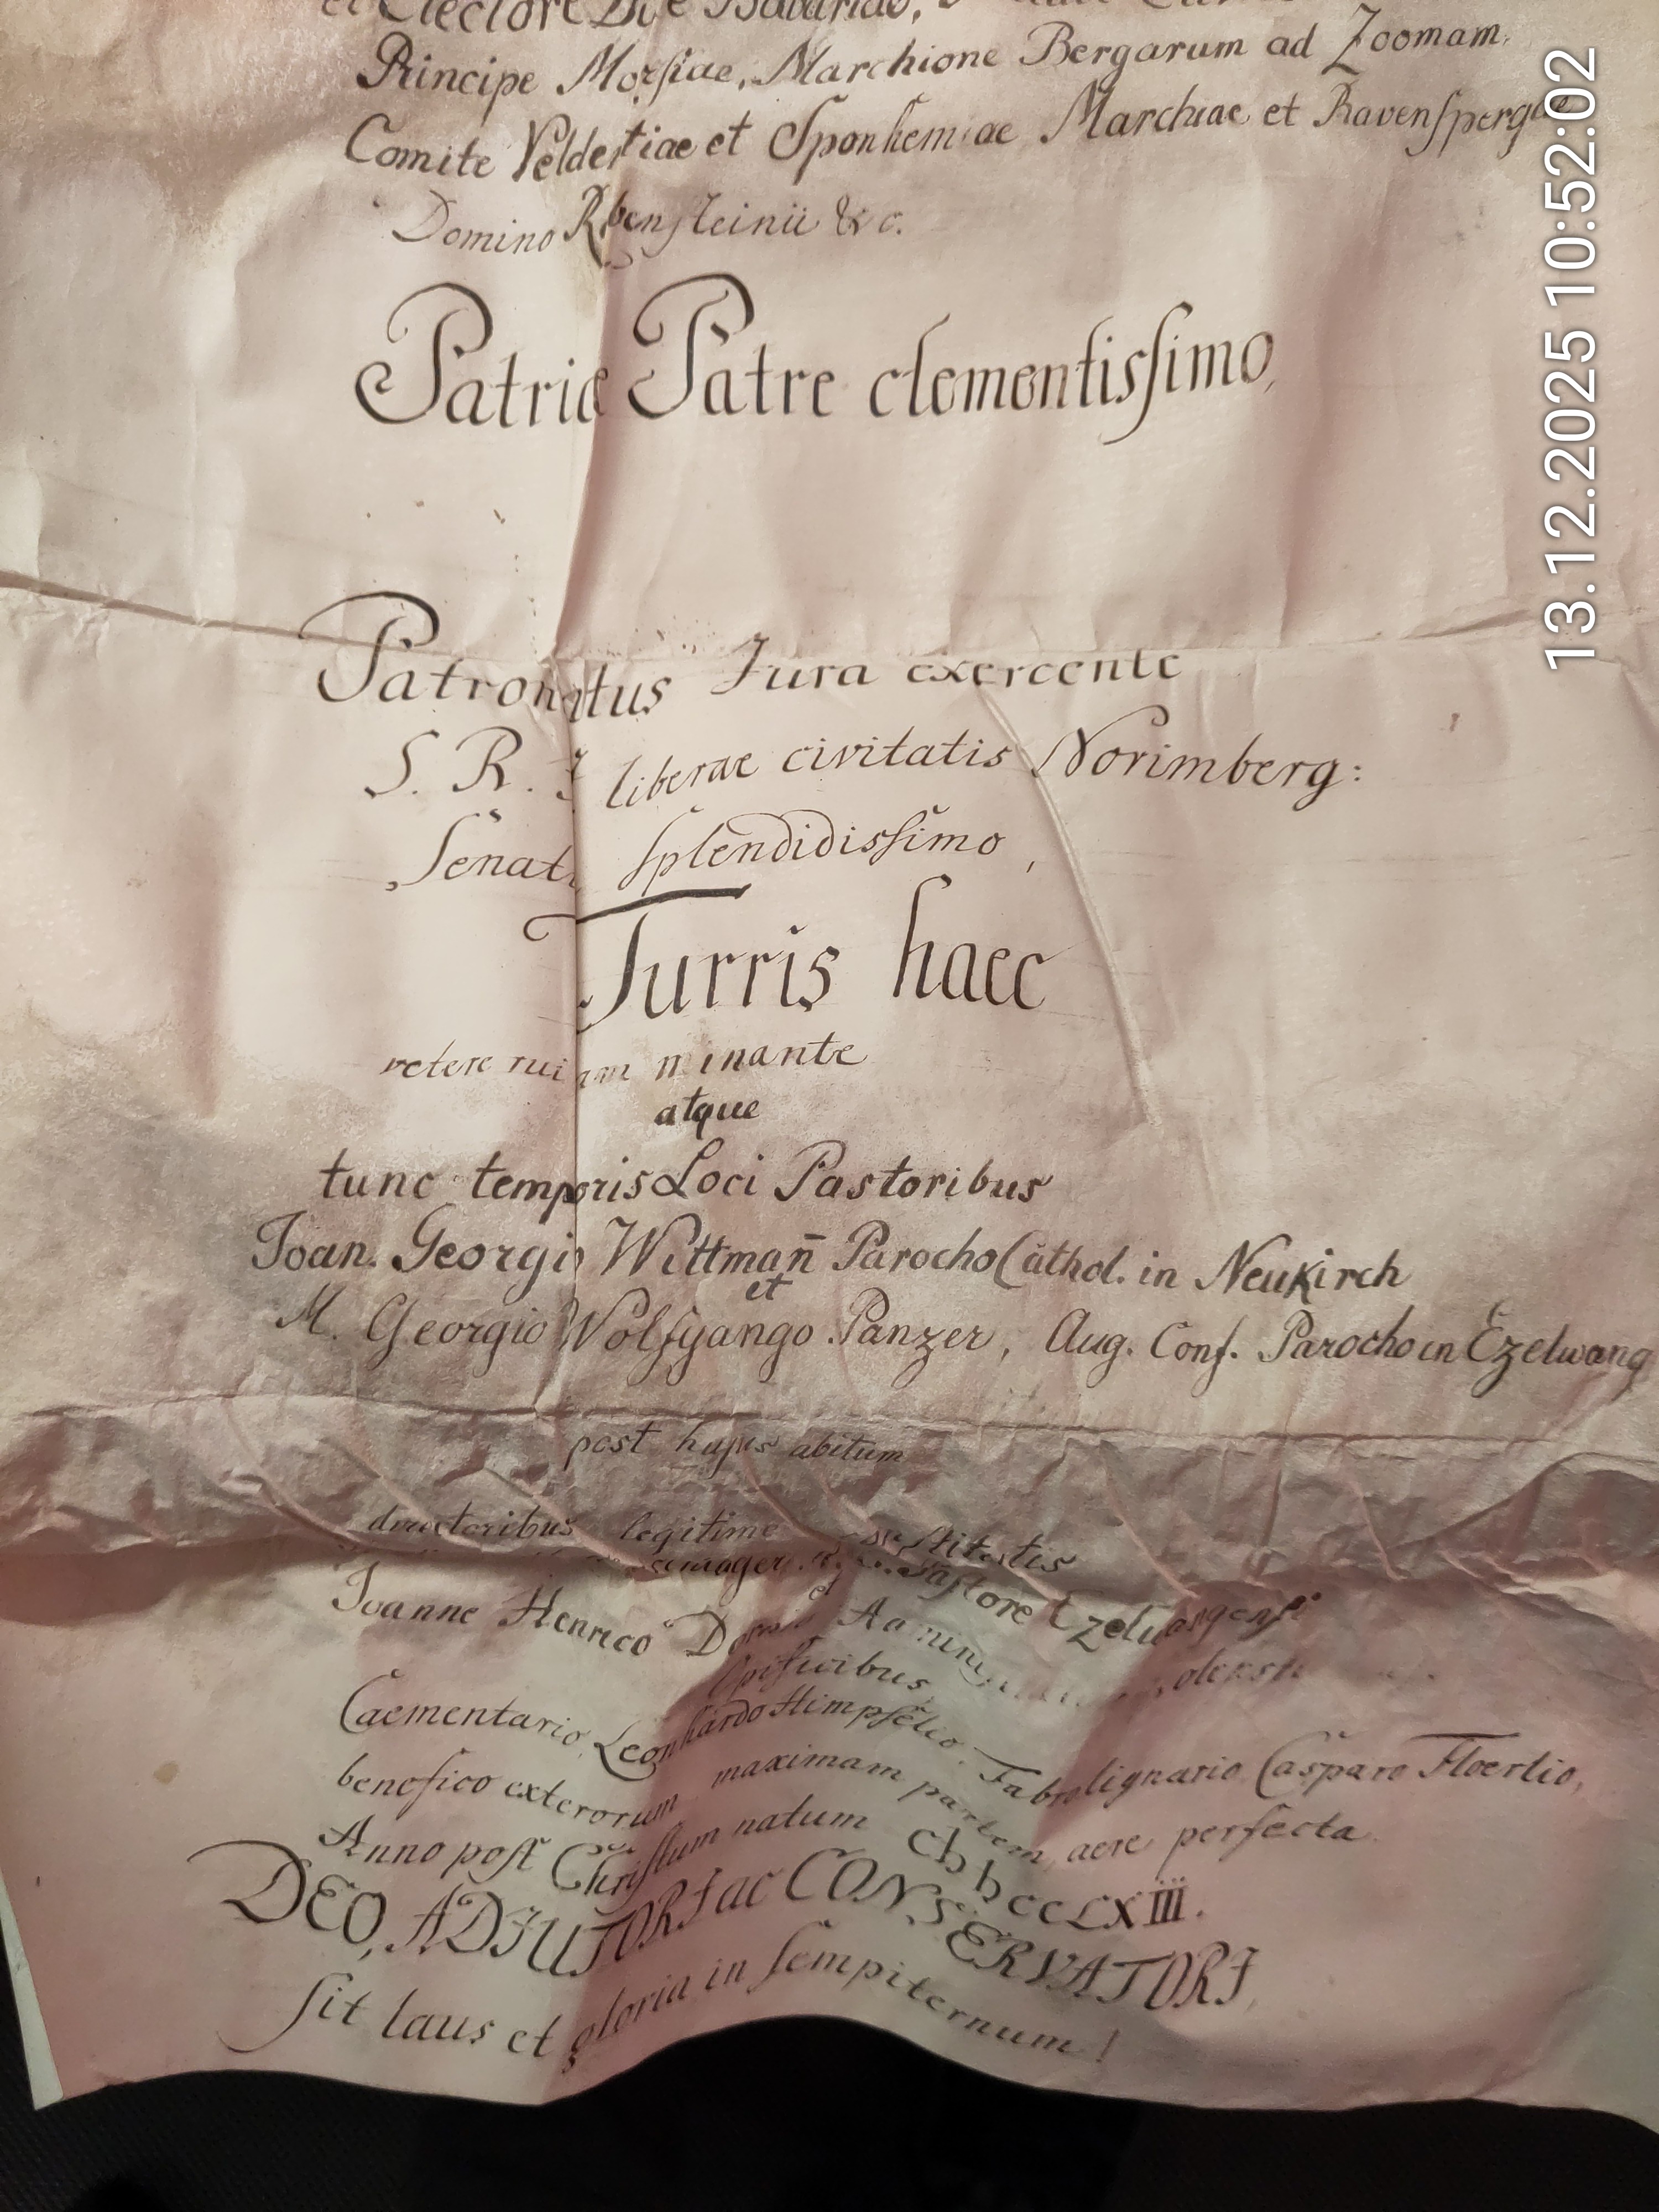 et Electore
Principe Morsiae, Marchione Bergarum ad Zoomam,
Comite Veldentiae et Sponhemiae Marchiae et Ravenspergae
Domino Rbensteinii &c.
Patriae Patre clementissimo,
Patronatus Jura exercente
S. R. I liberae civitatis Norimberg:
Senat splendidissimo,
Turris haec
vetere ruinam minante
atque
tunc temporis Loci Pastoribus
Ioan. Georgio Wittmañ Parocho Cathol. in Neukirch
et
M. Georgio Wolfgango Panzer, Aug. Conf. Parocho in Ezelwang
post hujus abitum
directoribus legitime
Pastore Ezelwangensi
et
Joanne Henrico
Opificibus
Caementario, Leonhardo Himpselio, Fabrolignario Casparo Floerlio,
benefico exterorum maximam partem aere perfecta
Anno post Christum natum cIɔ Iɔ CCLXIII.
DEO, ADJUTORI ac CONSERVATORI,
sit laus et gloria in sempiternum!
13.12.2025 10:52:02